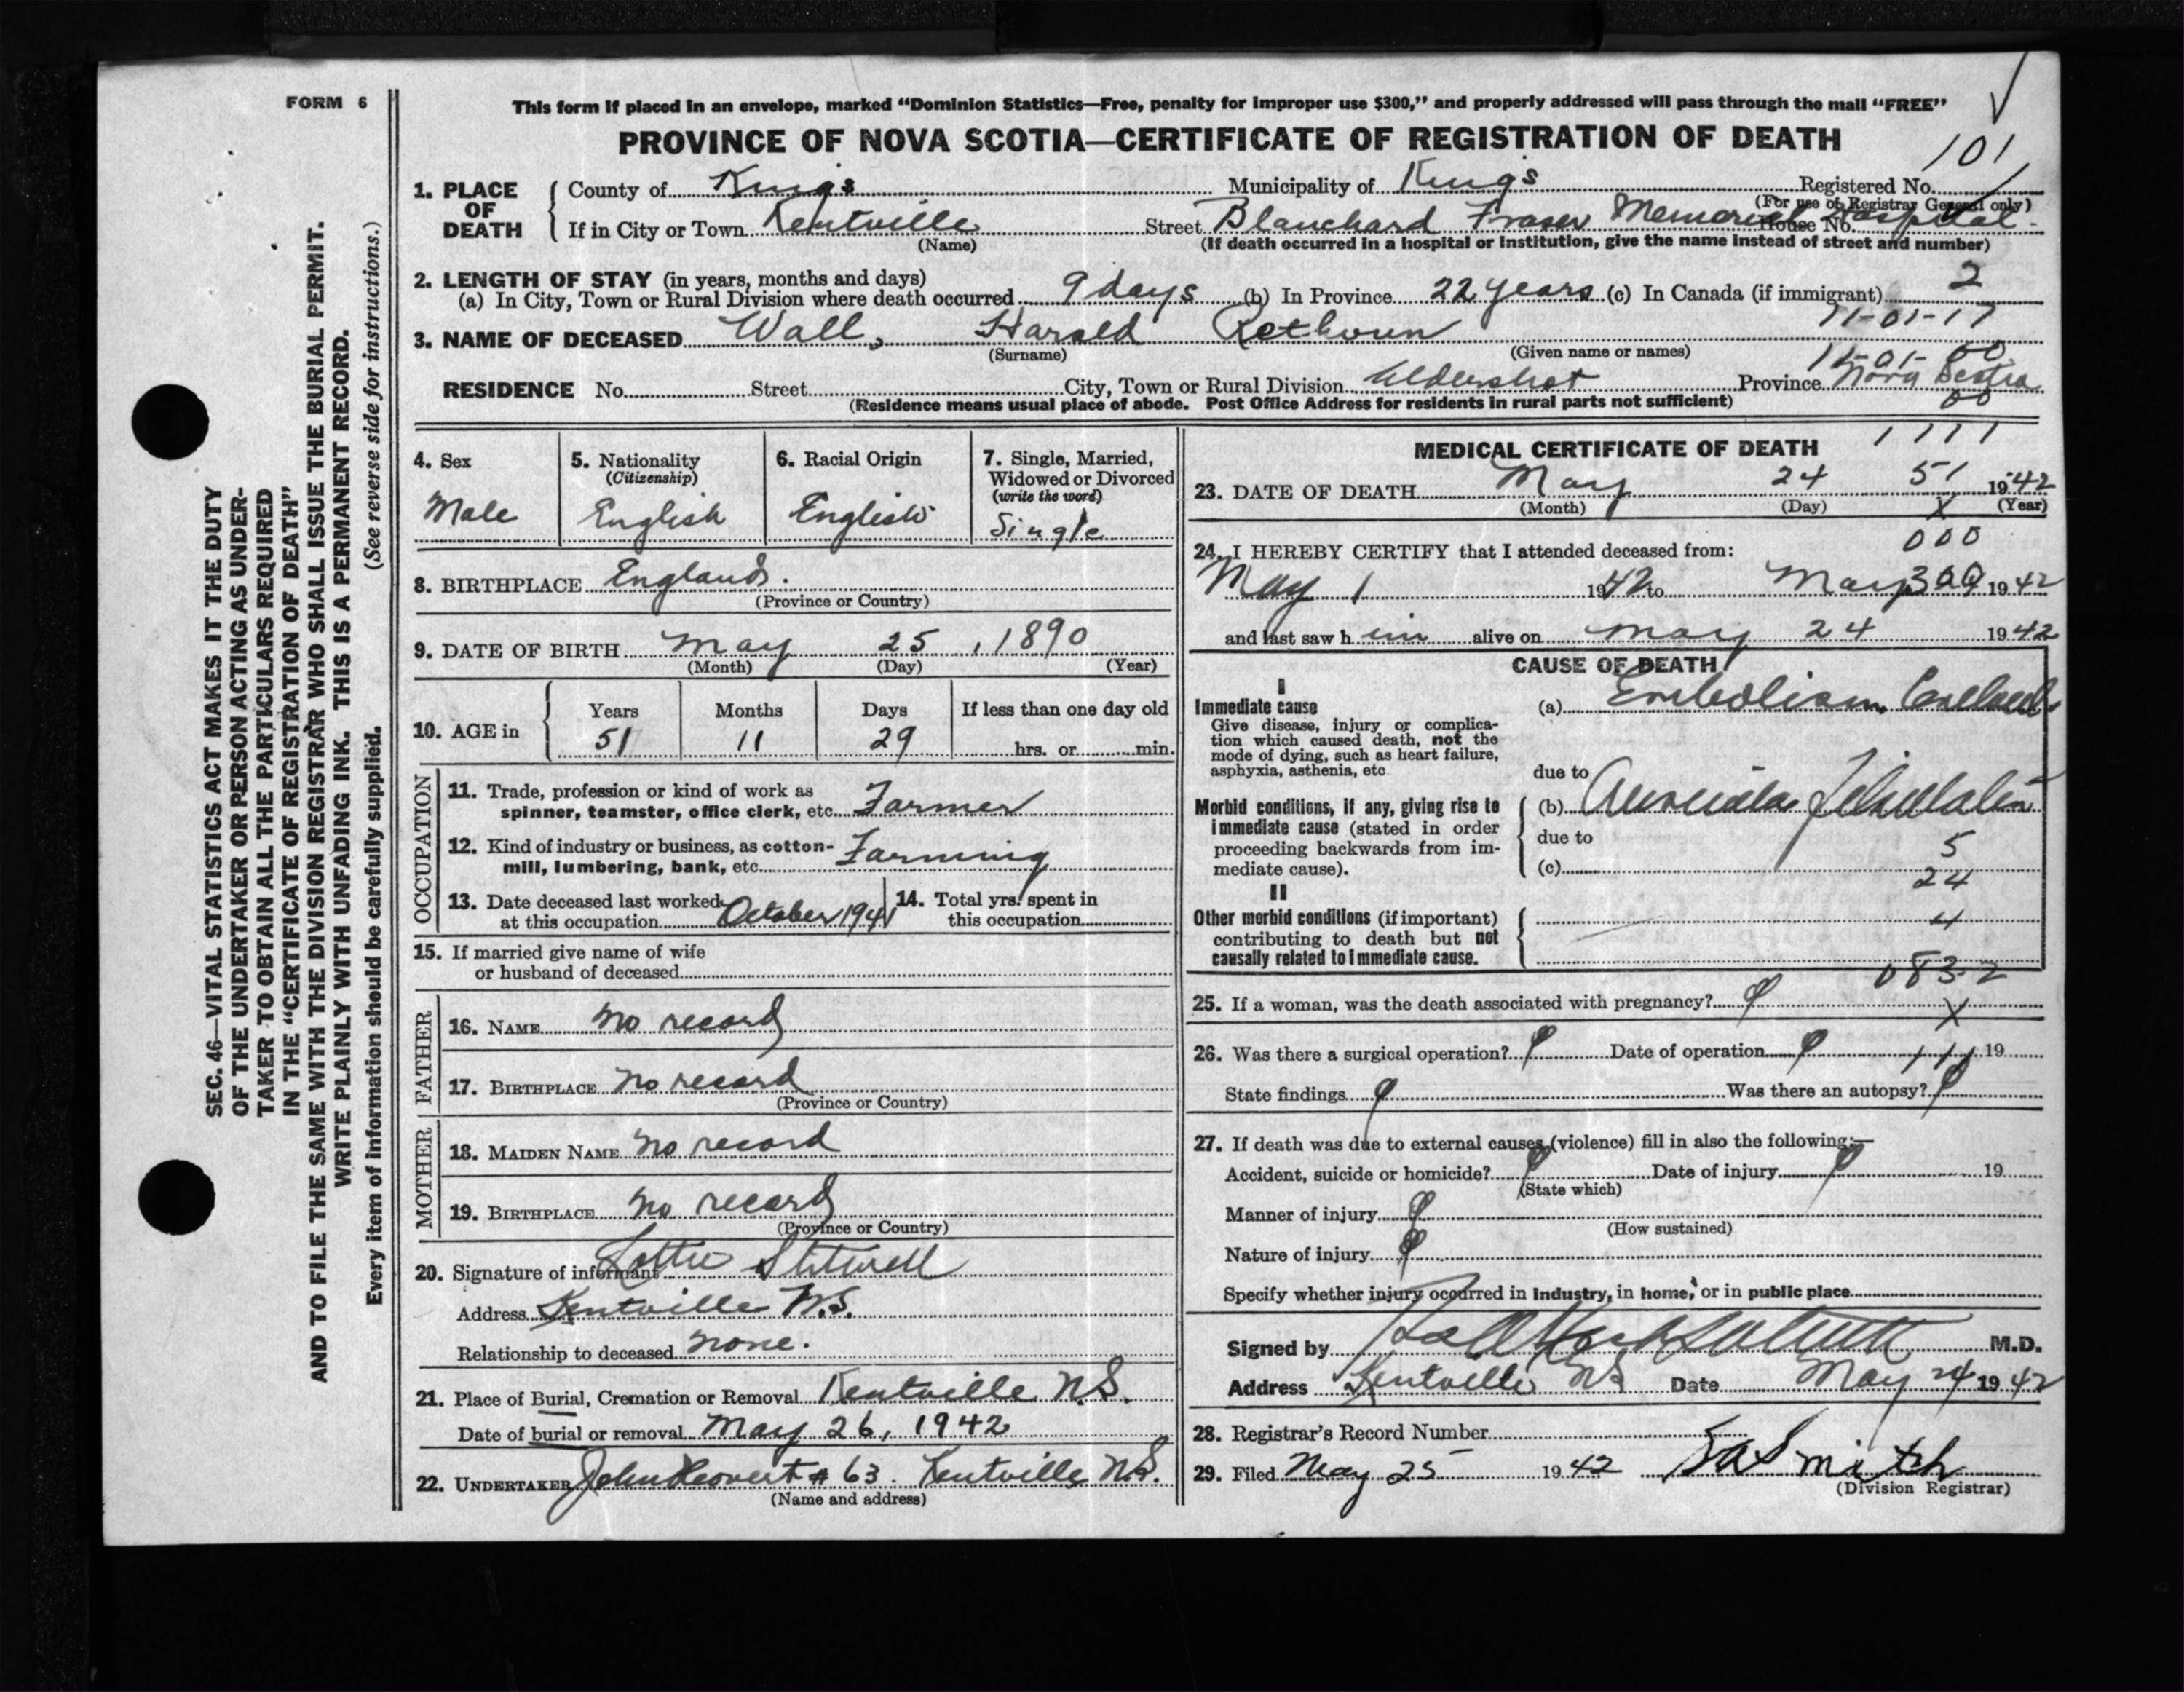 FORM 6
This form if placed in an envelope, marked "Dominion Statistics—Free, penalty for improper use $300," and properly addressed will pass through the mail "FREE"
PROVINCE OF NOVA SCOTIA—CERTIFICATE OF REGISTRATION OF DEATH
101
SEC. 46—VITAL STATISTICS ACT MAKES IT THE DUTY
OF THE UNDERTAKER OR PERSON ACTING AS UNDER-
TAKER TO OBTAIN ALL THE PARTICULARS REQUIRED
IN THE "CERTIFICATE OF REGISTRATION OF DEATH"
AND TO FILE THE SAME WITH THE DIVISION REGISTRAR WHO SHALL ISSUE THE BURIAL PERMIT.
WRITE PLAINLY WITH UNFADING INK. THIS IS A PERMANENT RECORD.
Every item of information should be carefully supplied. (See reverse side for instructions.)
1. PLACE OF DEATH County of Kings Municipality of Kings Registered No.
(For use of Registrar General only)
If in City or Town Kentville Street Blanchard Fraser Memorial Hospital House No.
(Name) (If death occurred in a hospital or institution, give the name instead of street and number)
2. LENGTH OF STAY (in years, months and days)
(a) In City, Town or Rural Division where death occurred 9 days (b) In Province 22 years (c) In Canada (if immigrant) 2
11-01-17
3. NAME OF DECEASED Wall, Harold
(Surname) (Given name or names)
11-01-00
RESIDENCE No. Street City, Town or Rural Division Aldershot Province Nova Scotia
(Residence means usual place of abode. Post Office Address for residents in rural parts not sufficient)
00
4. Sex Male
5. Nationality (Citizenship) English
6. Racial Origin English
7. Single, Married, Widowed or Divorced (write the word) Single
8. BIRTHPLACE England.
(Province or Country)
9. DATE OF BIRTH May 25, 1890
(Month) (Day) (Year)
10. AGE in Years Months Days If less than one day old
51 11 29 hrs. or min.
OCCUPATION
11. Trade, profession or kind of work as
spinner, teamster, office clerk, etc. Farmer
12. Kind of industry or business, as cotton-
mill, lumbering, bank, etc. Farming
13. Date deceased last worked
at this occupation October 1941
14. Total yrs. spent in
this occupation
15. If married give name of wife
or husband of deceased
FATHER
16. NAME No record
17. BIRTHPLACE No record
(Province or Country)
MOTHER
18. MAIDEN NAME No record
19. BIRTHPLACE No record
(Province or Country)
20. Signature of informant Lottie
Address Kentville N.S.
Relationship to deceased none.
21. Place of Burial, Cremation or Removal Kentville N.S.
Date of burial or removal May 26, 1942
22. UNDERTAKER John # 63. Kentville N.S.
(Name and address)
1111
MEDICAL CERTIFICATE OF DEATH
23. DATE OF DEATH May 24 51 1942
(Month) (Day) X (Year)
000
24. I HEREBY CERTIFY that I attended deceased from:
May 1 1942 to May 1942
and last saw h im alive on May 24 1942
CAUSE OF DEATH
I
Immediate cause
Give disease, injury or complica-
tion which caused death, not the
mode of dying, such as heart failure,
asphyxia, asthenia, etc.
(a) Embolism,
due to
Morbid conditions, if any, giving rise to
immediate cause (stated in order
proceeding backwards from im-
mediate cause).
(b)
due to
5
(c)
24
II
Other morbid conditions (if important)
contributing to death but not
causally related to immediate cause.
4
083-2
25. If a woman, was the death associated with pregnancy?
X
26. Was there a surgical operation? Date of operation 111 19
State findings Was there an autopsy?
27. If death was due to external causes (violence) fill in also the following:—
Accident, suicide or homicide? Date of injury 19
(State which)
Manner of injury
(How sustained)
Nature of injury
Specify whether injury occurred in industry, in home, or in public place
Signed by M.D.
Address Kentville NS Date May 24 1942
28. Registrar's Record Number
29. Filed May 25 1942
(Division Registrar)